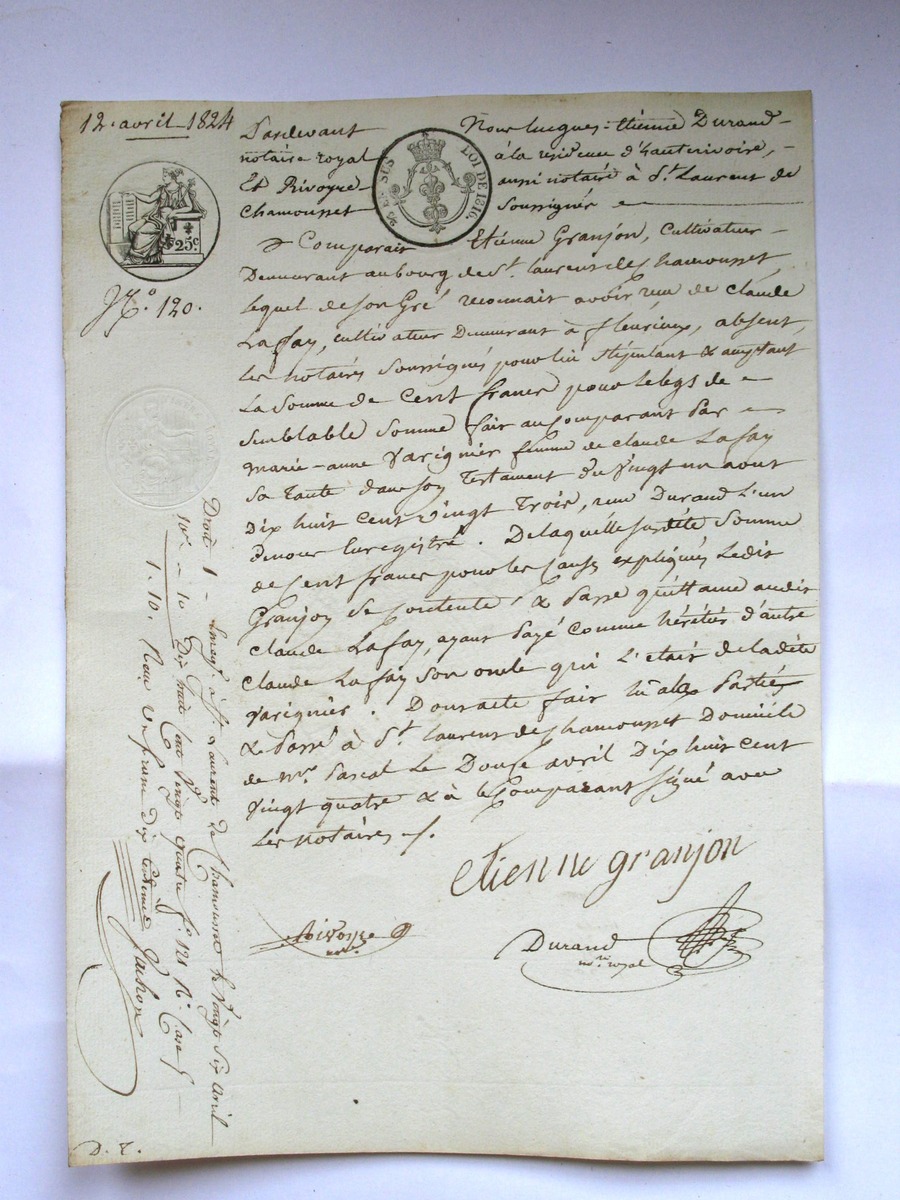 12. avril 1824
Pardevant Nous Lucques-Etienne Durand
notaire royal à la residence d'hauterivoire,
Et Rivoyre aussi notaire à St. Laurent de
Chamousset Soussignés
EN SUS LOI DE 1816.
25c
No. 120.
Comparait Etienne Granjon, Cultivateur
Demeurant au bourg de St. laurent de Chamousset,
lequel de Son Gré reconnait avoir reçu de Claude
Lafay, cultivateur Demeurant à fleurieux, absent,
les notaires Soussignés pour lui Stipulant & acceptant
La Somme de Cent francs pour le legs de
Semblable Somme fait au Comparant Par
Marie-anne Varignier femme de Claude Lafay
Sa Tante dans Son Testament du Vingt un aout
Dix huit Cent Vingt Trois, reçu Durand L'un
de nous Enregistré. De laquelle Susdite Somme
de Cent francs pour les Causes expliquées Ledit
Granjon Se Contente, & Passe quittance audit
Claude Lafay, ayant Payé Comme héritier d'autre
Claude Lafay Son oncle qui L'etait de ladite
Varignier. Dont acte fait lu aux Parties
& Passé à St. Laurent de Chamousset Domicile
de Mr. Pascal Le Douze avril Dix huit Cent
Vingt quatre & à le Comparant Signé avec
Les notaires
etienne granjon
Rivoyre
Durand
nre. royal
Droit 1 - Enregt. à St. Laurent de Chamousset le Vingt Six avril
10e - 10 Dix huit Cent Vingt quatre fo. 121 Ro. Case 5
1. 10. Reçu un franc dix Centimes
D. T.